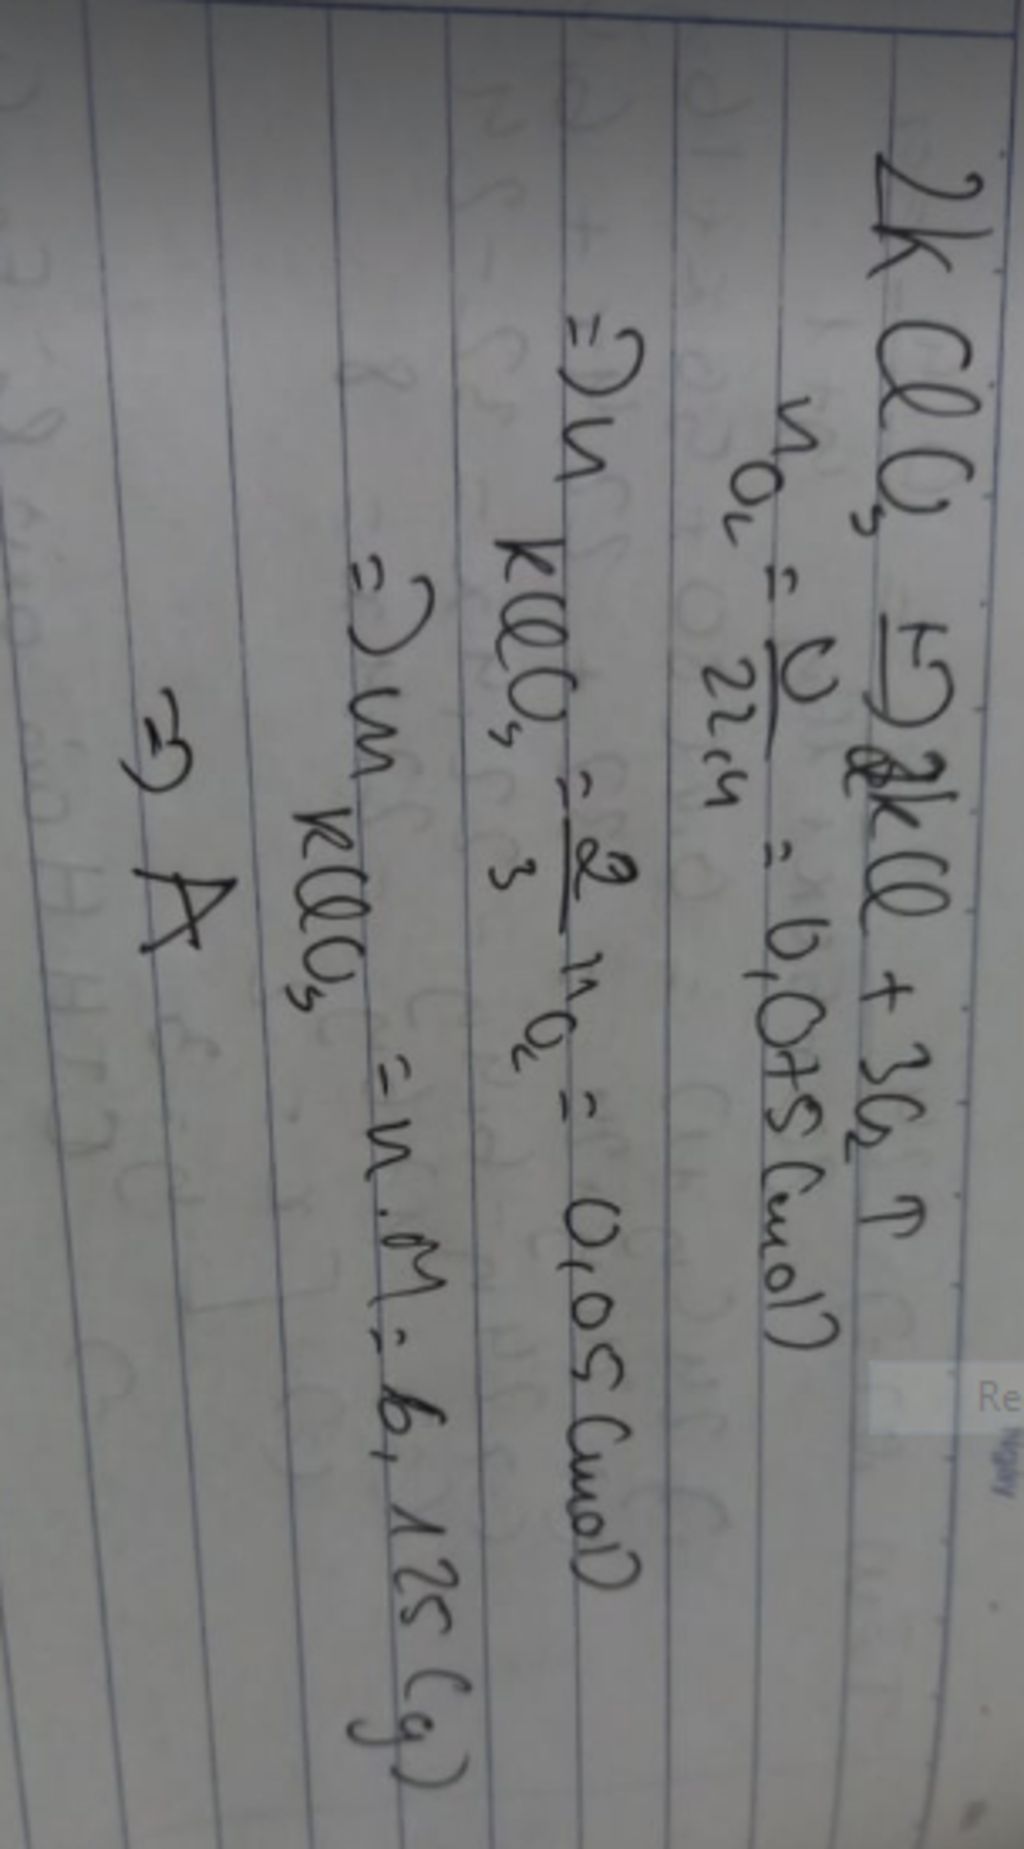 2KClO₃ →(t°) 2KCl + 3O₂ ↑
n O₂ = V/22,4 = 0,075 (mol)
=> n KClO₃ = 2/3 n O₂ = 0,05 (mol)
=> m KClO₃ = n.M = 6,125 (g)
=> A
Re
Ngày